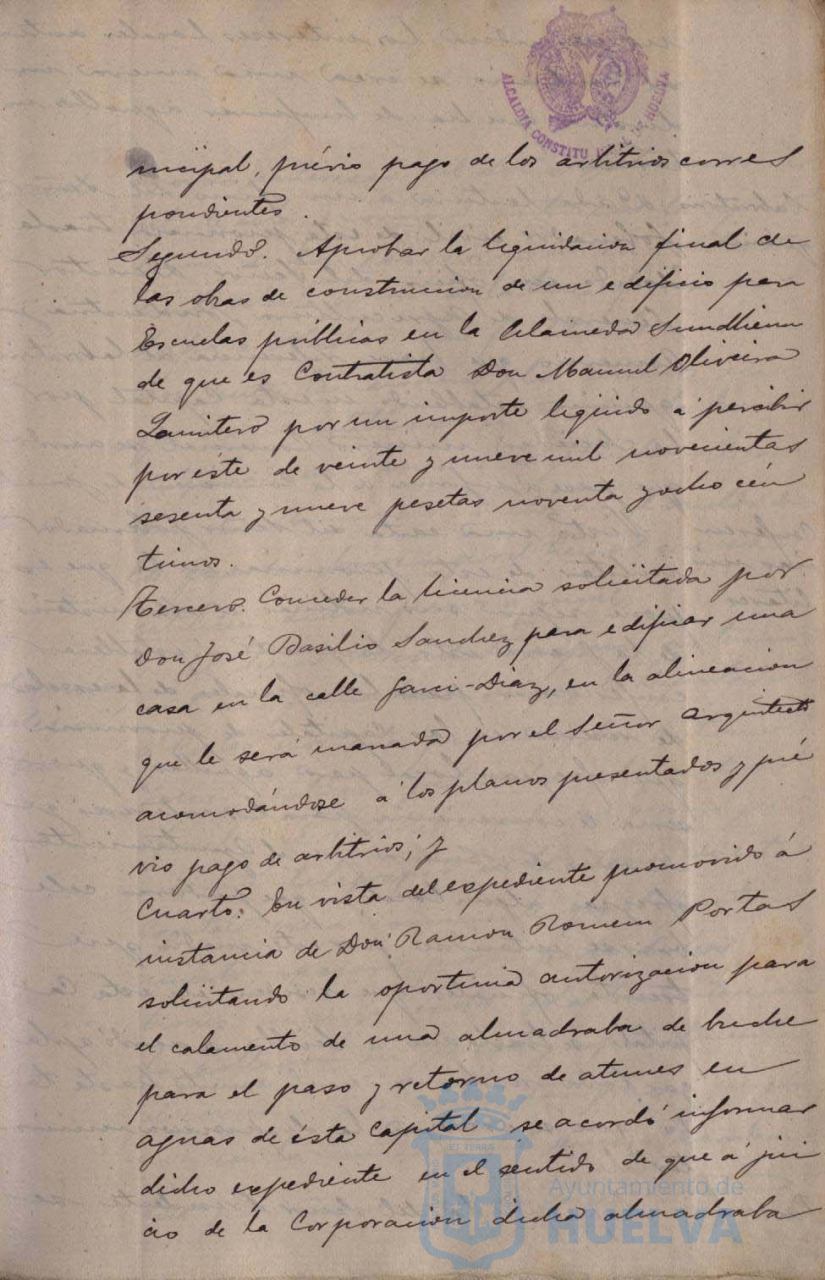 ALCALDIA CONSTITU HUELVA
nicipal, prévio pago de los arbitrios corres
pondientes.
Segundo. Aprobar la liquidacion final de
las obras de construccion de un edificio para
Escuelas públicas en la Alameda Sundheim
de que es Contratista Don Manuel Oliveira
por un importe liquido á percibir
por éste de veinte y nueve mil novecientas
sesenta y nueve pesetas noventa y ocho cén
timos.
Tercero. Conceder la licencia solicitada por
Don José Basilio Sanchez para edificar una
casa en la calle Garci-Diaz, en la alineacion
que le será marcada por el Señor Arquitecto
acomodándose á los planos presentados y pré
vio pago de arbitrios; y
Cuarto. En vista del expediente promovido á
instancia de Don Ramon Romeu Portas
solicitando la oportuna autorizacion para
el calamento de una almadraba de buche
para el paso y retorno de atunes en
aguas de ésta Capital se acordó informar
dicho expediente en el sentido de que á jui
cio de la Corporacion dicha almadraba
Ayuntamiento de
HUELVA